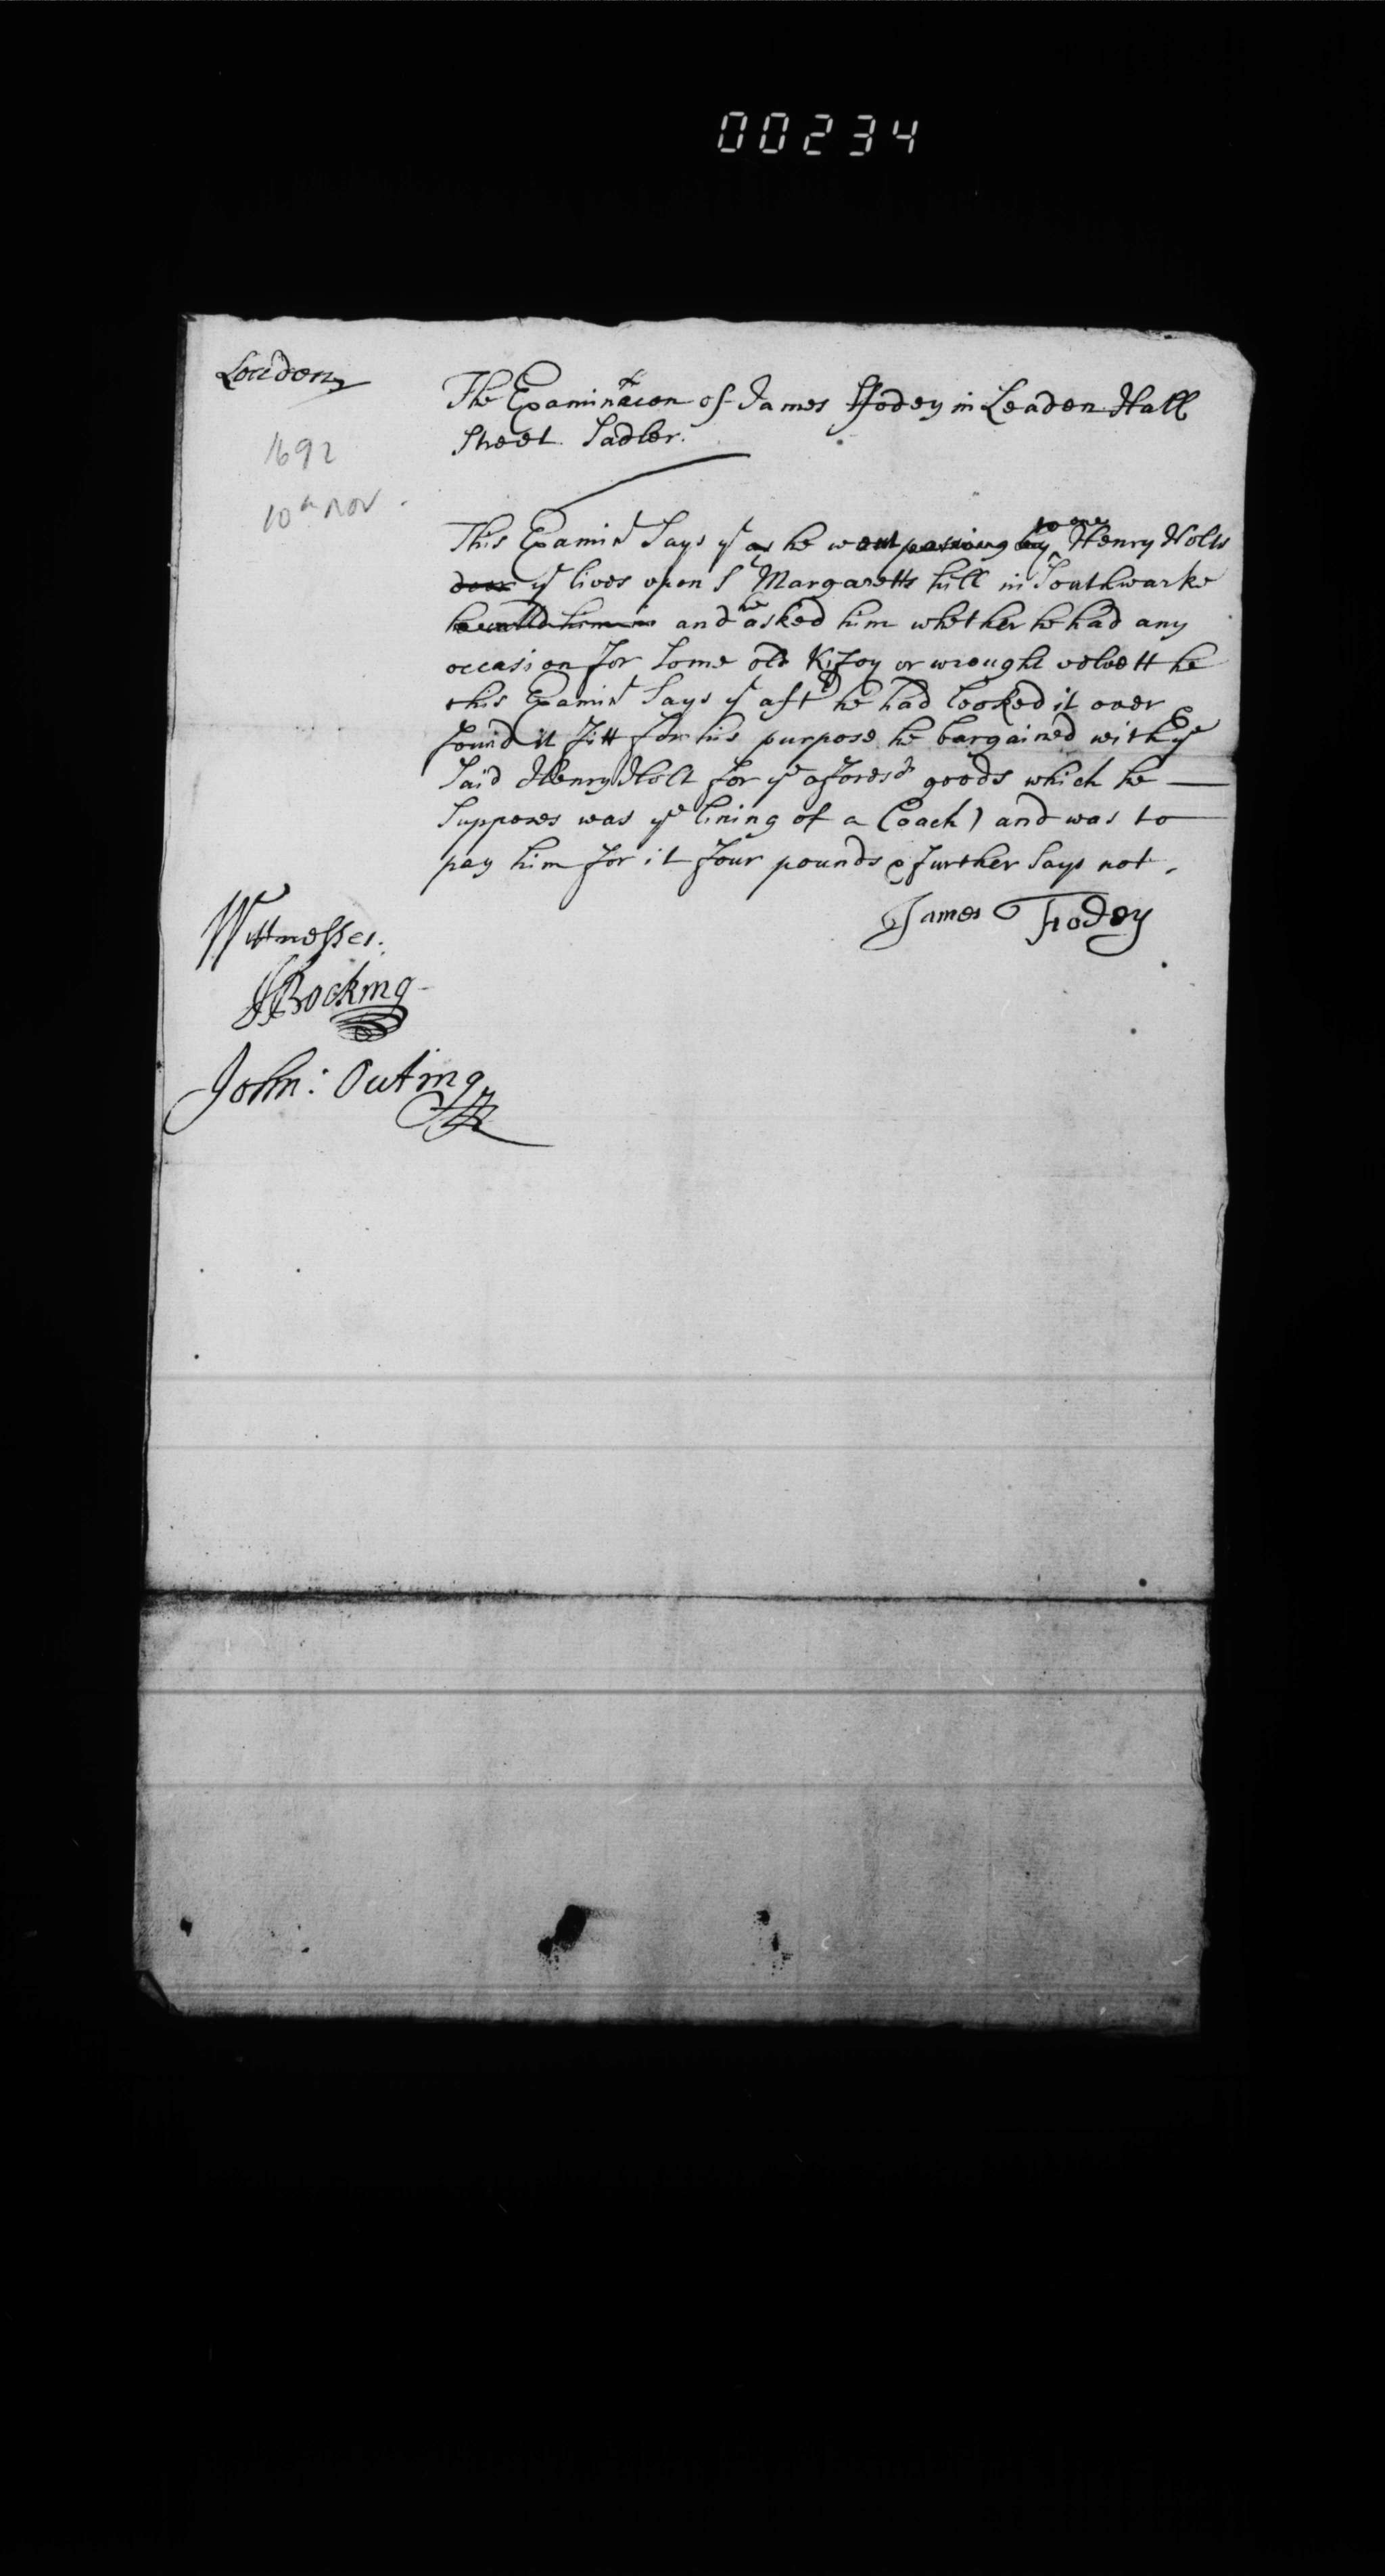 00234
London
1692
10th nov.
The Examinacon of James Ffodey in Leaden Hall
Street Sadler.
This Examint Says yt as he went passing by to one Henry Holts
door yt lives upon St Margaretts hill in Southwarke
he called him in and he asked him whether he had any
occasion for some old or wrought velvett he
this Examint Says yt aftr he had looked it over
found it fitt for his purpose he bargained with ye
said Henry Holt for ye aforesd goods which he
Supposes was ye lining of a Coach) and was to
pay him for it four pounds & further Says not.
James Fodey
Wittnesses.
Bocking
John: Outing